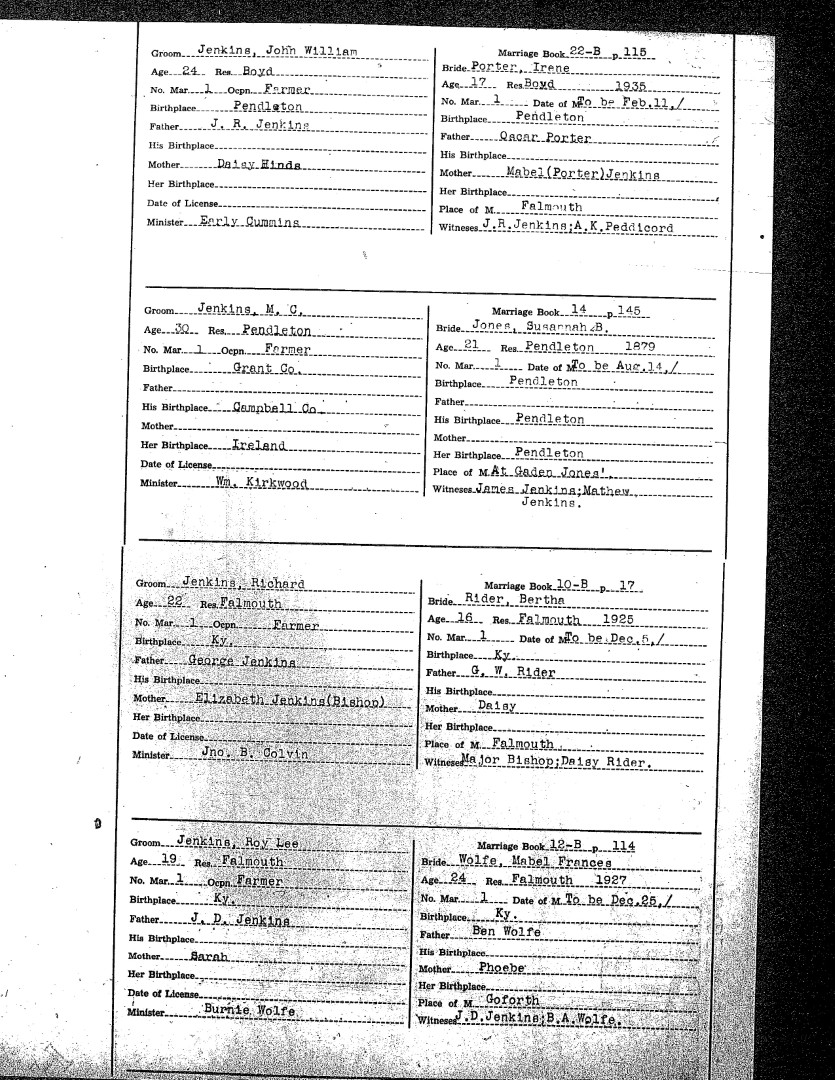 Groom Jenkins, John William
Age 24 Res. Boyd
No. Mar. 1 Ocpn. Farmer
Birthplace Pendleton
Father J. R. Jenkins
His Birthplace
Mother Daisy Hinds
Her Birthplace
Date of License
Minister Early Cummins
Marriage Book 22-B p 115
Bride Porter, Irene
Age 17 Res Boyd 1935
No. Mar. 1 Date of M. To be Feb.11,/
Birthplace Pendleton
Father Oscar Porter
His Birthplace
Mother Mabel(Porter)Jenkins
Her Birthplace
Place of M. Falmouth
Witneses J.R.Jenkins;A.K.Peddicord
Groom Jenkins, M. C.
Age 30 Res. Pendleton
No. Mar. 1 Ocpn. Farmer
Birthplace Grant Co.
Father
His Birthplace Campbell Co.
Mother
Her Birthplace Ireland
Date of License
Minister Wm. Kirkwood
Marriage Book 14 p 145
Bride Jones, Susannah B.
Age 21 Res Pendleton 1879
No. Mar. 1 Date of M. To be Aug.14,/
Birthplace Pendleton
Father
His Birthplace Pendleton
Mother
Her Birthplace Pendleton
Place of M. At Gaden Jones'.
Witneses James Jenkins;Mathew
Jenkins.
Groom Jenkins, Richard
Age 22 Res. Falmouth
No. Mar. 1 Ocpn. Farmer
Birthplace Ky.
Father George Jenkins
His Birthplace
Mother Elizabeth Jenkins(Bishop)
Her Birthplace
Date of License
Minister Jno. B. Colvin
Marriage Book 10-B p 17
Bride Rider, Bertha
Age 16 Res. Falmouth 1925
No. Mar. 1 Date of M. To be Dec.5,/
Birthplace Ky.
Father G. W. Rider
His Birthplace
Mother Daisy
Her Birthplace
Place of M. Falmouth
Witneses Major Bishop;Daisy Rider.
Groom Jenkins, Roy Lee
Age 19 Res. Falmouth
No. Mar. 1 Ocpn. Farmer
Birthplace Ky.
Father J. D. Jenkins
His Birthplace
Mother Sarah
Her Birthplace
Date of License
Minister Burnie Wolfe
Marriage Book 12-B p 114
Bride Wolfe, Mabel Frances
Age 24 Res Falmouth 1927
No. Mar. 1 Date of M. To be Dec.25,/
Birthplace Ky.
Father Ben Wolfe
His Birthplace
Mother Phoebe
Her Birthplace
Place of M. Goforth
Witneses J.D.Jenkins;B.A.Wolfe.